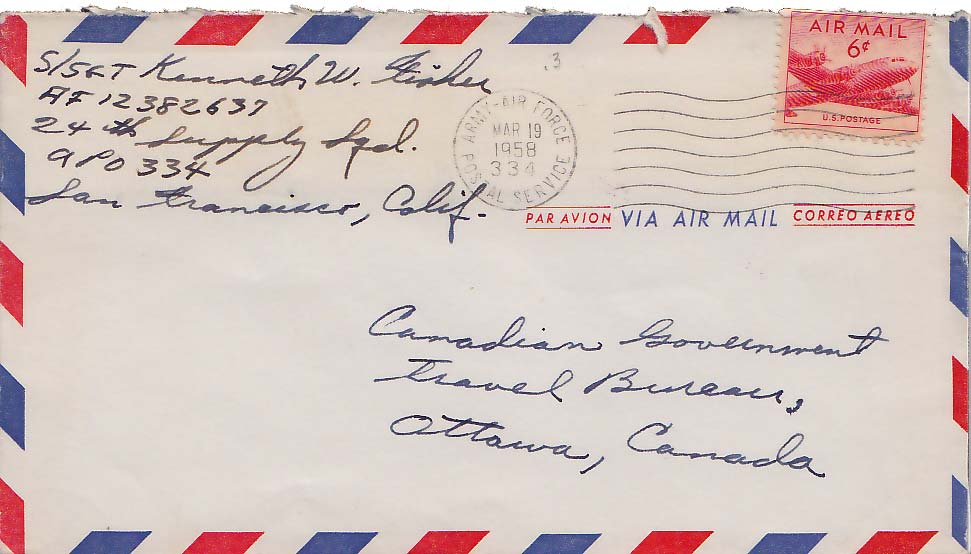 S/SGT Kenneth W. Fisher
AF 12382637
24th Supply Sqd.
APO 334
San Francisco, Calif.
3
ARMY-AIR FORCE
MAR 19
1958
334
POSTAL SERVICE
AIR MAIL
6¢
U.S. POSTAGE
PAR AVION VIA AIR MAIL CORREO AEREO
Canadian Government
Travel Bureau,
Ottawa, Canada